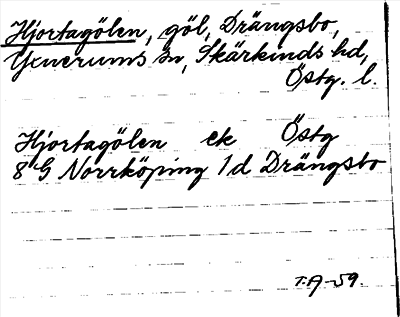 Hjortagölen, göl, Drängsbo,
Yxnerums sn, Skärkinds hd,
Östg. l.
Hjortagölen ek Östg
8 G Norrköping 1d Drängsbo
T.A-59.